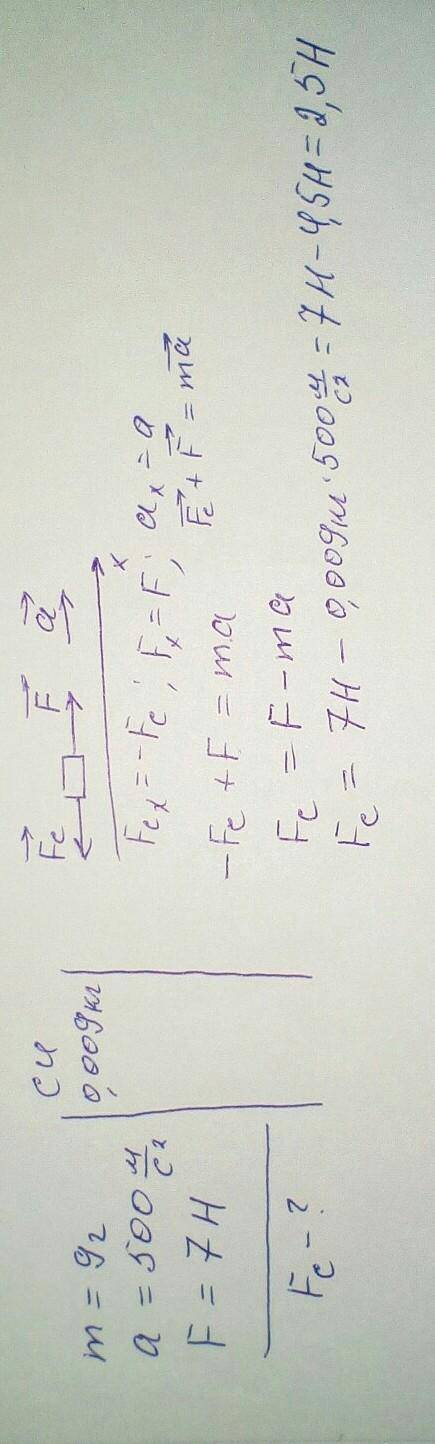 m = 9г
a = 500 м/с²
F = 7 Н
Fc - ?
СИ
0,009 кг
F⃗c F⃗ a⃗
x
Fcx = -Fc; Fx = F; ax = a
F⃗c + F⃗ = ma⃗
-Fc + F = ma
Fc = F - ma
Fc = 7Н - 0,009кг · 500 м/с² = 7Н - 4,5Н = 2,5Н